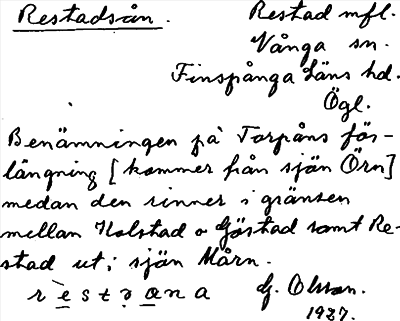 Restadsån.
Restad mfl.
Vånga sn.
Finspånga Läns hd.
Ögl.
Benämningen på Torpåns för-
längning [kommer från sjön Örn]
medan den rinner i gränsen
mellan Kolstad o Göstad samt Re-
stad ut i sjön Mårn.
G. Olsson.
1927.